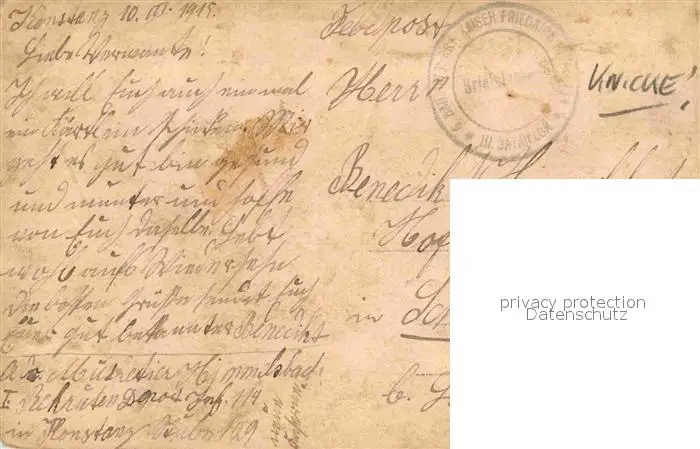 Konstanz 10. III. 1915.
Liebe Verwante!
Ich will Euch auch einmal
ein Kärtlein schicken. Mir
geht es gut bin gesund
und munter und hoffe
von Euch dasselbe. Lebt
wohl auf Wiedersehn
Die besten Grüsse sendet Euch
Euer gut bekannter Benedikt
Musketier Himmelsbach
I. Rekruten Depot Inf. 114
in Konstanz Stube 129
Feldpost
KAISER FRIEDRICH
6. BAD.
III. BATAILLON
Briefstempel
KNICKE!
Herrn
Benedikt
Hof
in
b.
privacy protection
Datenschutz